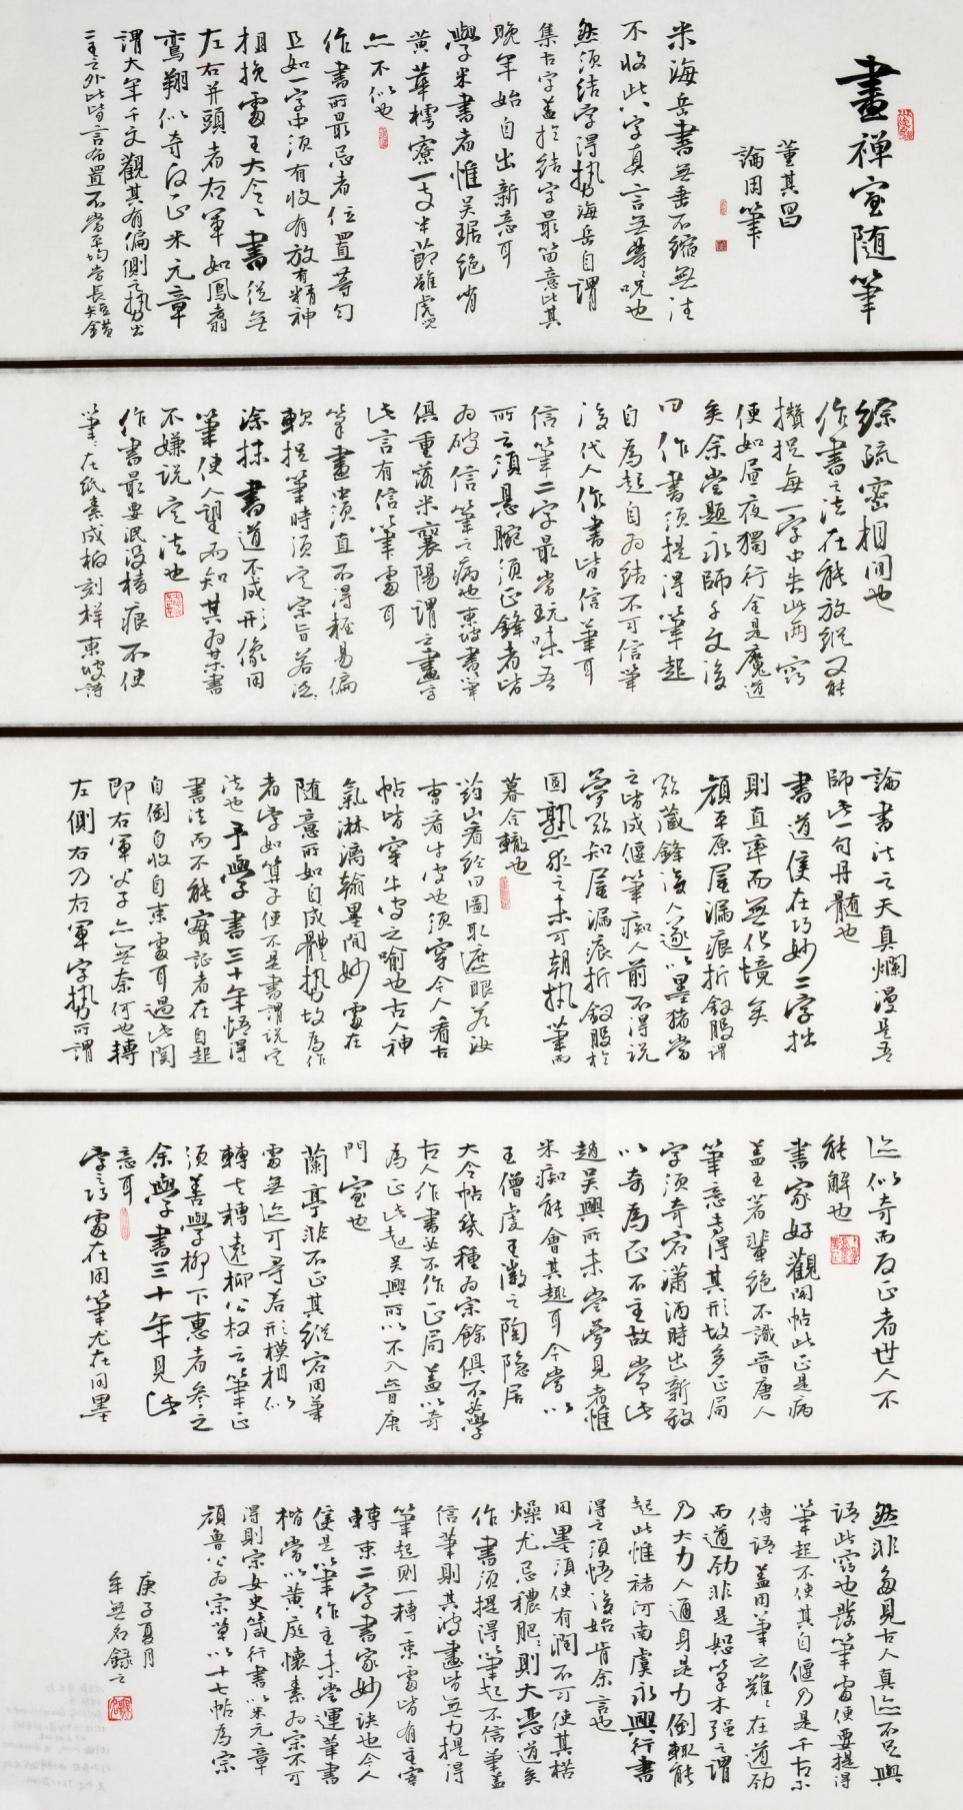 畫禪室随筆
董其昌
論用筆
米海岳書無垂不縮無往
不收此八字真言無等等咒也
然須結字得勢海岳自謂
集古字蓋於結字最留意比其
晚年始自出新意耳
學米書者惟吴琚绝肖
黄華樗寮一支半節雖虎兒
亦不似也
作書所最忌者位置等匀
且如一字中须有收有放有精神
相挽處王大令之書從無
左右并頭者右軍如鳳翥
鸾翔似奇反正米元章
謂大年千文觀其有偏側之勢出
二王之外此皆言布置不當平均當長短錯
綜疏密相間也
作書之法在能放縱又能
攢捉每一字中失此两竅
便如晝夜獨行全是魔道
矣余嘗題永師千文後
曰作書須提得筆起
自為起自為結不可信筆
後代人作書皆信筆耳
信筆二字最當玩味吾
所云須悬腕須正鋒者皆
為破信筆之病也東坡書筆
俱重落米襄陽謂之畫字
此言有信筆處耳
筆畫中須直不得輕易偏
軟捉筆時須定宗旨若泛泛
涂抹書道不成形像用
筆使人望而知其為某書
不嫌説定法也
作書最要泯没棱痕不使
筆筆在紙素成板刻样東坡詩
論書法云天真爛漫是吾
師此一句丹髓也
書道隻在巧妙二字拙
則直率而無化境矣
顔平原屋漏痕折釵股謂
欲藏鋒後人遂以墨猪當
之皆成偃筆痴人前不得説
夢欲知屋漏痕折釵股於
圆熟求之未可朝執筆而
暮合轍也
药山看经曰圖取遮眼若汝
曹看牛皮也須穿今人看古
帖皆穿牛皮之喻也古人神
氣淋漓翰墨間妙處在
随意所如自成體勢故為作
者字如算子便不是書謂説定
法也予學書三十年悟得
書法而不能實証者在自起
自倒自收自束處耳過此関
即右軍父子亦無奈何也轉
左側右乃右軍字勢所謂
迹似奇而反正者世人不
能解也
書家好觀閣帖此正是病
蓋王著輩絶不識晋唐人
筆意專得其形故多正局
字須奇宕瀟洒時出新致
以奇為正不主故常此
趙吴興所未嘗夢見者惟
米痴能會其趣耳今當以
王僧虔王徽之陶隐居
大令帖幾種為宗餘俱不必學
古人作書必不作正局蓋以奇
為正此赵吴興所以不入晋唐
門室也
蘭亭非不正其縱宕用筆
處無迹可尋若形模相似
轉去轉遠柳公权云筆正
須善學柳下惠者參之
余學書三十年見此
意耳
字之巧處在用筆尤在用墨
然非多見古人真迹不足與
語此竅也發筆處便要提得
筆起不使其自偃乃是千古不
傳語蓋用筆之難難在遒劲
而遒劲非是怒筆木强之謂
乃大力人通身是力倒輒能
起此惟褚河南虞永興行書
得之須悟後始肯余言也
用墨須使有潤不可使其枯
燥尤忌穠肥肥則大恶道矣
作書須提得筆起不信筆蓋
信筆則其波畫皆無力提得
筆起則一轉一束處皆有主宰
轉束二字書家妙诀也今人
隻是以筆作主未嘗運筆書
楷當以黄庭懷素為宗不可
得則宗女史箴行書以米元章
顔魯公為宗草以十七帖為宗
庚子夏月
牟無名録之